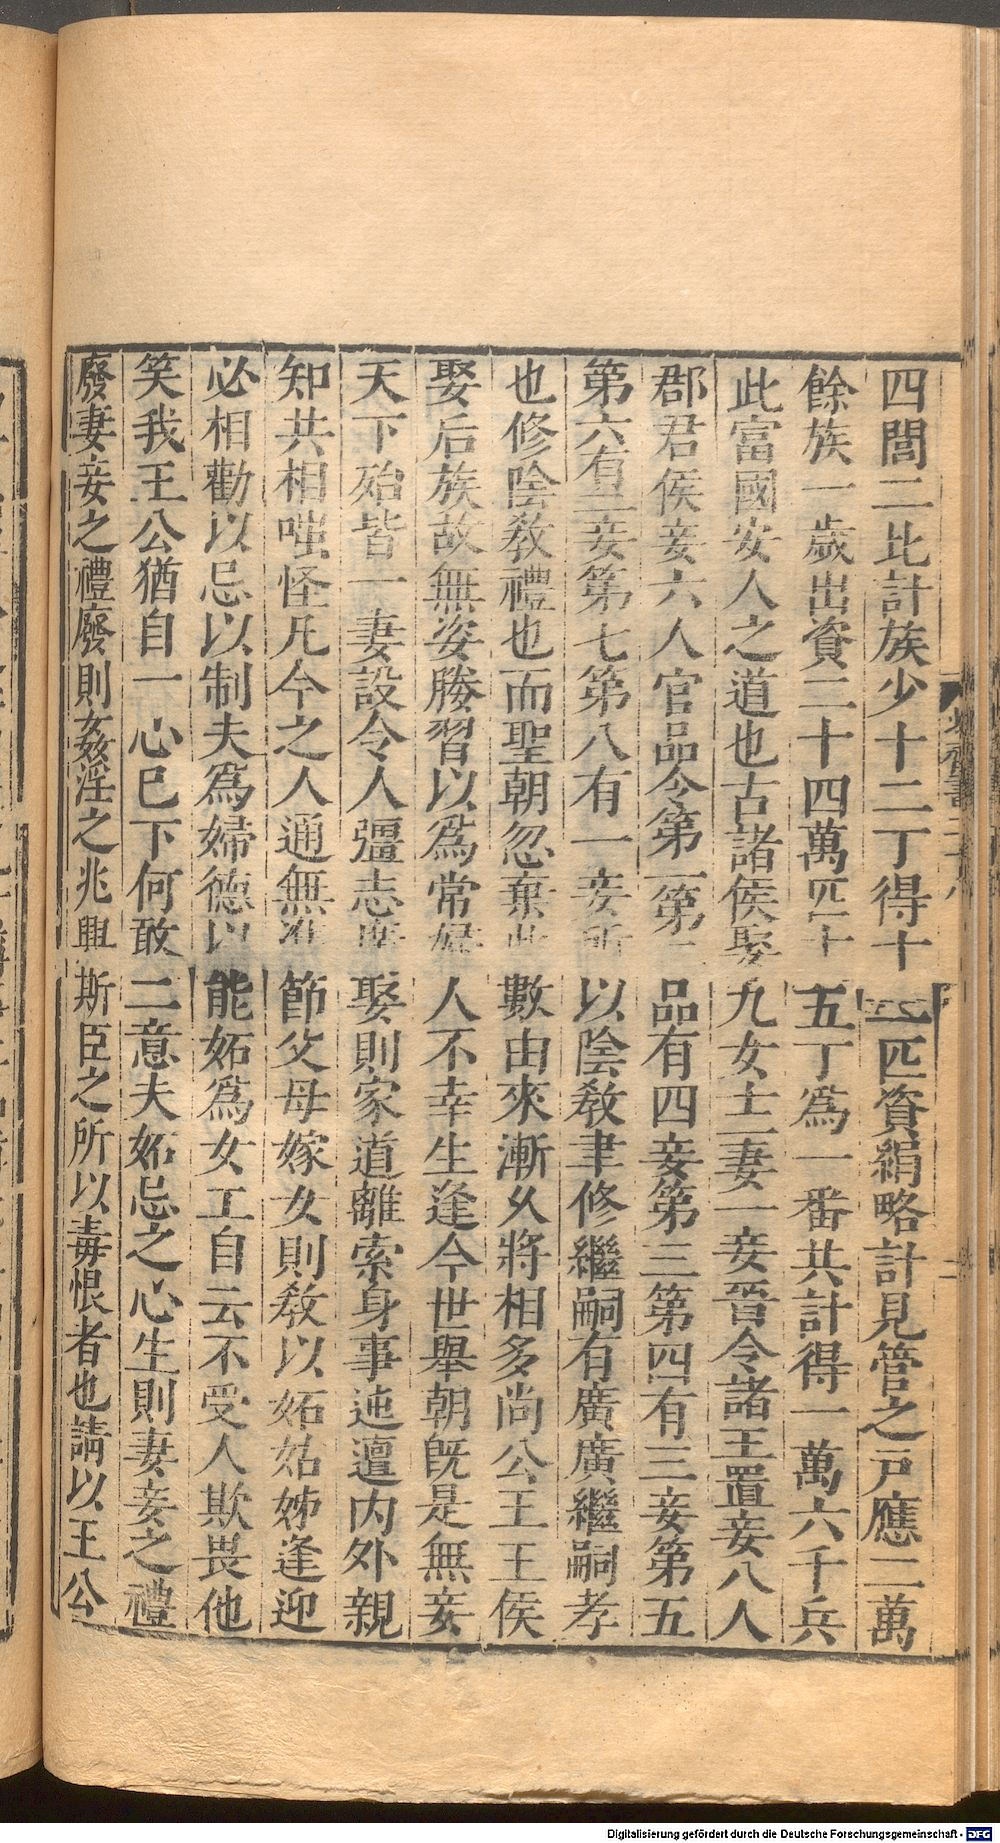 四閭二比計族少十二丁得十二匹資絹略計見管之戸應二萬
餘族一歳出資二十四萬匹十五丁爲一番共計得一萬六千兵
此富國安人之道也古諸侯娶九女士一妻一妾晉令諸王置妾八人
郡君侯妾六人官品令第一第二品有四妾第三第四有三妾第五
第六有二妾第七第八有一妾所以陰敎聿修繼嗣有廣廣繼嗣孝
也修陰敎禮也而聖朝忽棄此數由來漸久將相多尚公王王侯
娶后族故無妾媵習以爲常婦人不幸生逢今世舉朝旣是無妾
天下殆皆一妻設令人彊志廣娶則家道離索身事迍邅内外親
知共相嗤怪凡今之人通無準節父母嫁女則敎以妬姑姊逢迎
必相勸以忌以制夫爲婦德以能妬爲女工自云不受人欺畏他
笑我王公猶自一心已下何敢二意夫妬忌之心生則妻妾之禮
廢妻妾之禮廢則姦淫之兆興斯臣之所以毒恨者也請以王公
Digitalisierung gefördert durch die Deutsche Forschungsgemeinschaft - DFG